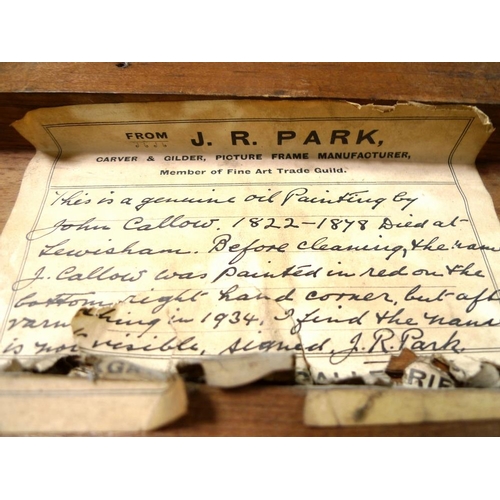 FROM J. R. PARK,
CARVER & GILDER, PICTURE FRAME MANUFACTURER,
Member of Fine Art Trade Guild.
This is a genuine oil Painting by
John Callow. 1822-1878 Died at
Lewisham. Before cleaning, the name
J. Callow was painted in red on the
bottom right hand corner, but aft
varnishing in 1934. I find the name
is not visible, signed J. R. Park